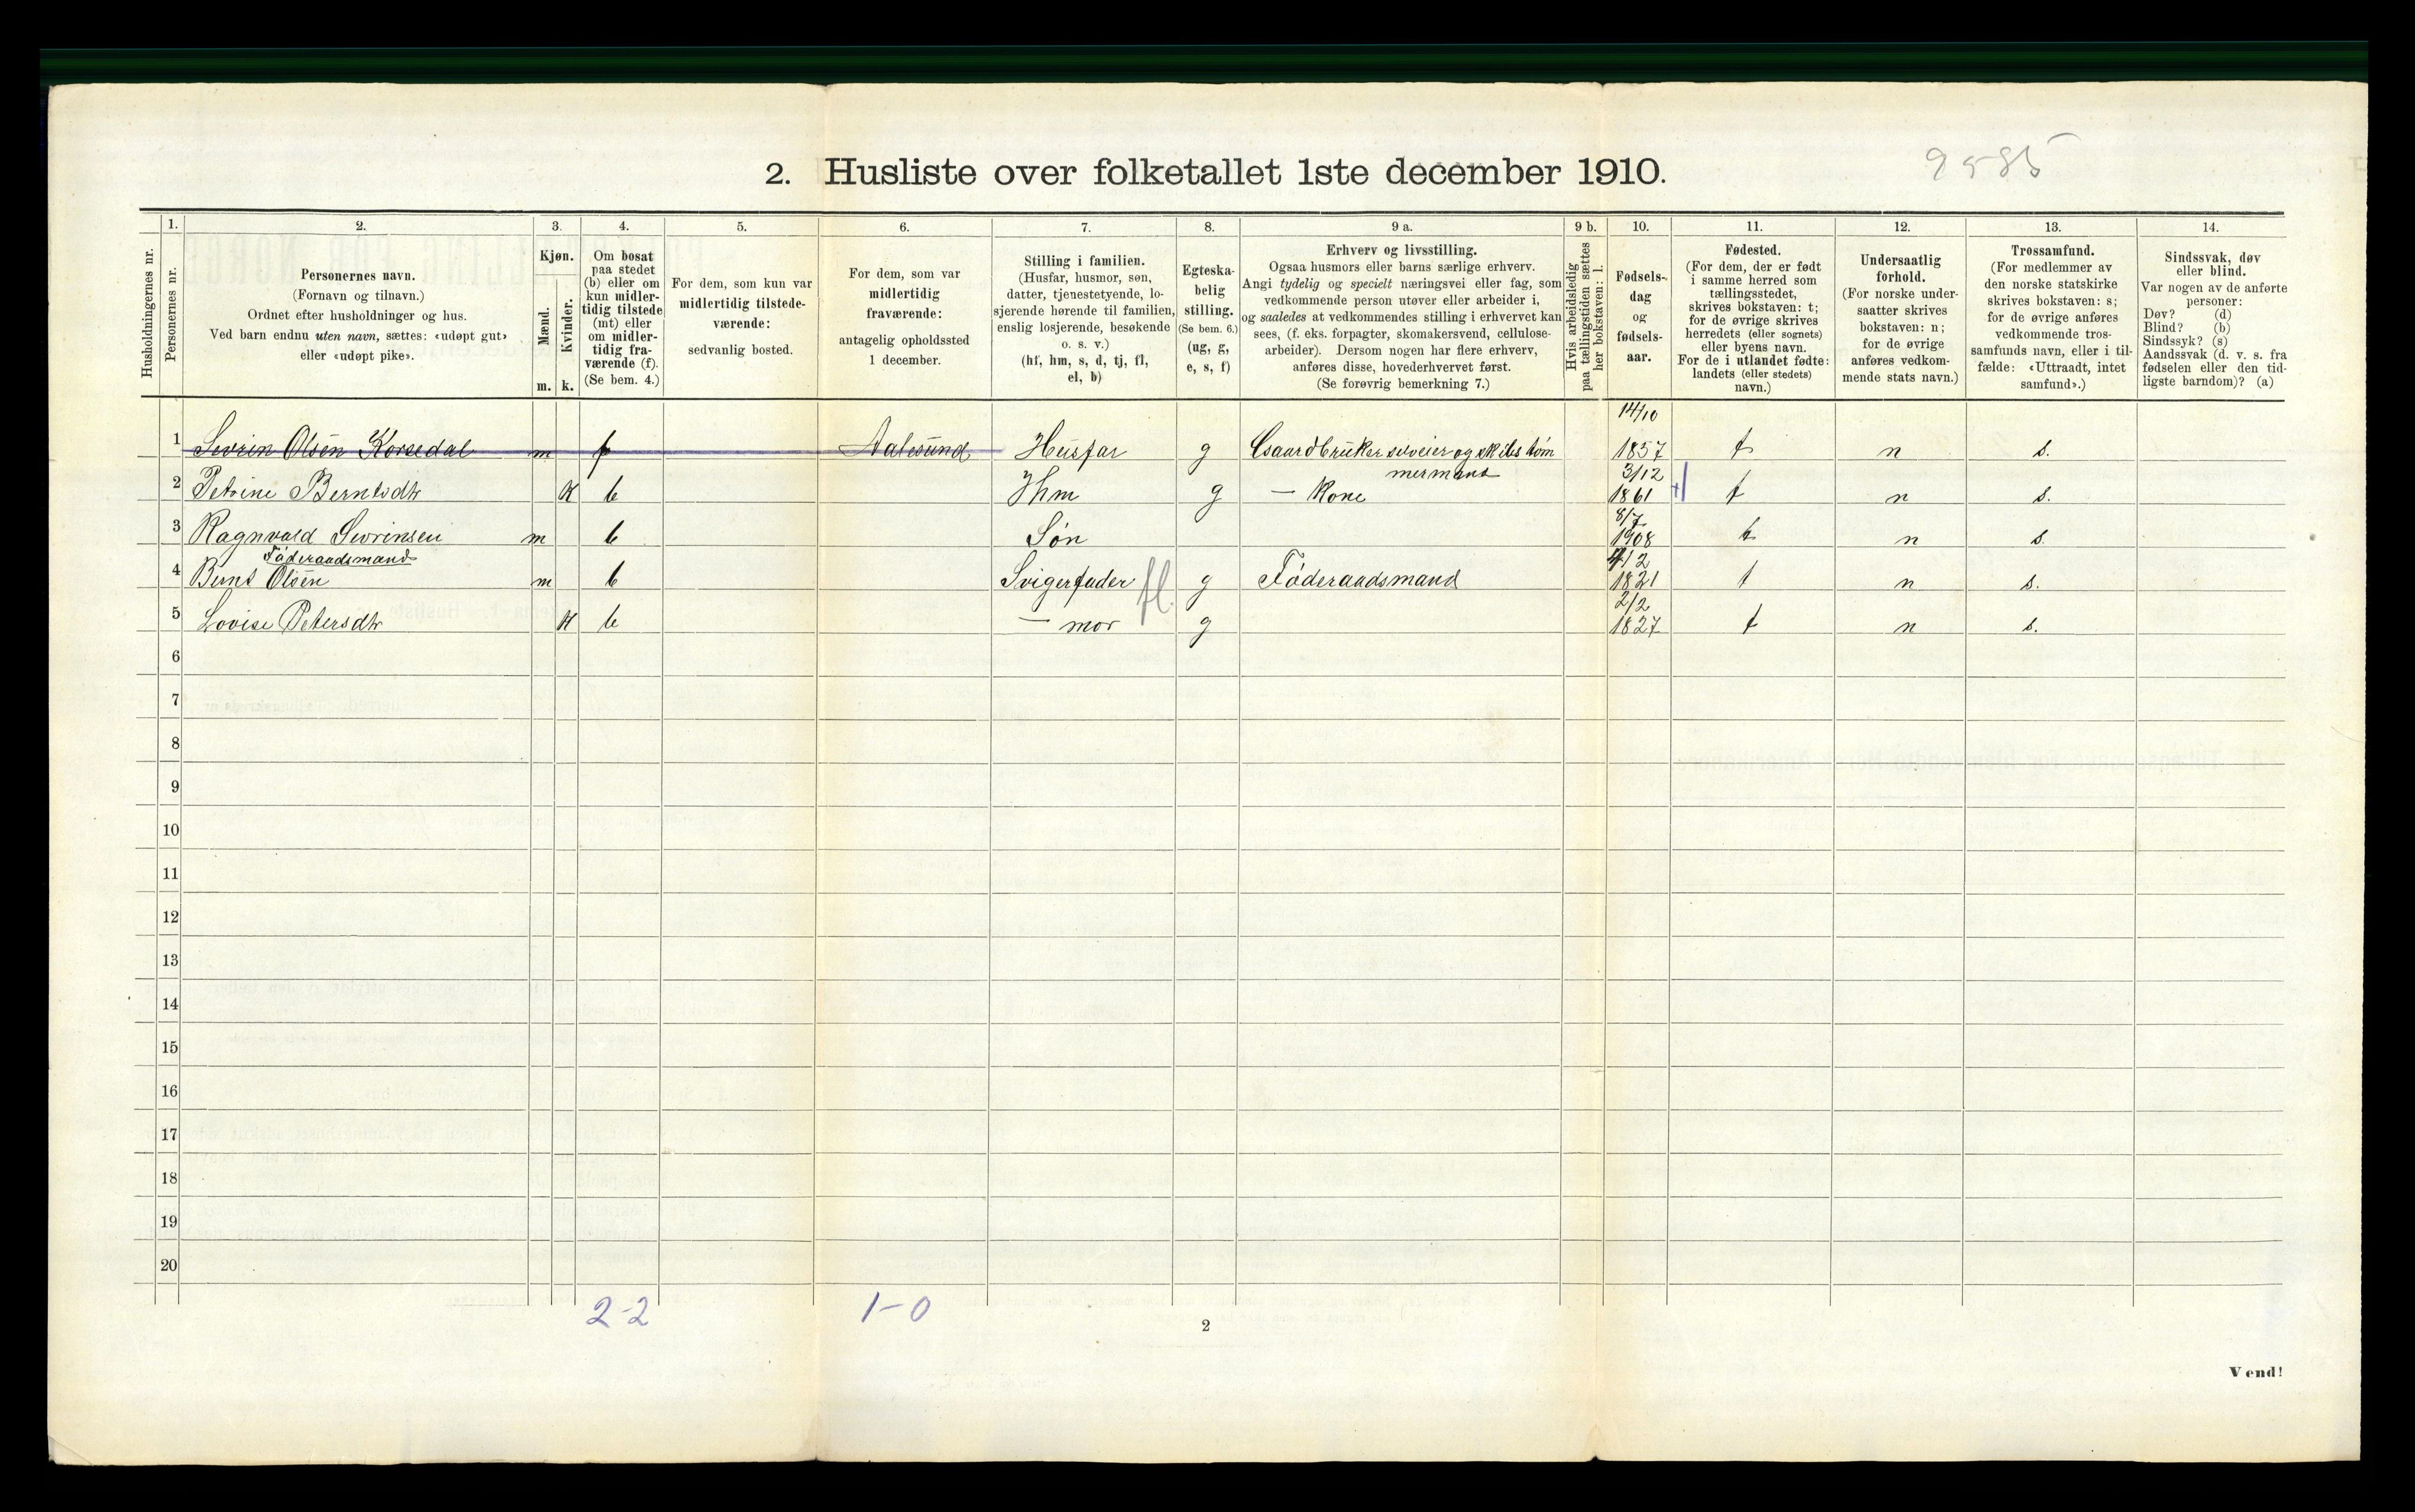 9585
2. Husliste over folketallet 1ste december 1910.
Husholdningernes nr.
1.
Personernes nr.
2.
Personernes navn.
(Fornavn og tilnavn.)
Ordnet efter husholdninger og hus.
Ved barn endnu uten navn, sættes: «udøpt gut»
eller «udøpt pike».
3.
Kjøn.
Mænd.
Kvinder.
m. k.
4.
Om bosat
paa stedet
(b) eller om
kun midler-
tidig tilstede
(mt) eller
om midler-
tidig fra-
værende (f).
(Se bem. 4.)
5.
For dem, som kun var
midlertidig tilstede-
værende:
sedvanlig bosted.
6.
For dem, som var
midlertidig
fraværende:
antagelig opholdssted
1 december.
7.
Stilling i familien.
(Husfar, husmor, søn,
datter, tjenestetyende, lo-
sjerende hørende til familien,
enslig losjerende, besøkende
o. s. v.)
(hf, hm, s, d, tj, fl,
el, b)
8.
Egteska-
belig
stilling.
(Se bem. 6.)
(ug, g,
e, s, f)
9 a.
Erhverv og livsstilling.
Ogsaa husmors eller barns særlige erhverv.
Angi tydelig og specielt næringsvei eller fag, som
vedkommende person utøver eller arbeider i,
og saaledes at vedkommendes stilling i erhvervet kan
sees, (f. eks. forpagter, skomakersvend, cellulose-
arbeider). Dersom nogen har flere erhverv,
anføres disse, hovederhvervet først.
(Se forøvrig bemerkning 7.)
9 b.
Hvis arbeidsledig
paa tællingstiden sættes
her bokstaven: l.
10.
Fødsels-
dag
og
fødsels-
aar.
11.
Fødested.
(For dem, der er født
i samme herred som
tællingsstedet,
skrives bokstaven: t;
for de øvrige skrives
herredets (eller sognets)
eller byens navn.
For de i utlandet fødte:
landets (eller stedets)
navn.)
12.
Undersaatlig
forhold.
(For norske under-
saatter skrives
bokstaven: n;
for de øvrige
anføres vedkom-
mende stats navn.)
13.
Trossamfund.
(For medlemmer av
den norske statskirke
skrives bokstaven: s;
for de øvrige anføres
vedkommende tros-
samfunds navn, eller i til-
fælde: «Uttraadt, intet
samfund».)
14.
Sindssvak, døv
eller blind.
Var nogen av de anførte
personer:
Døv? (d)
Blind? (b)
Sindssyk? (s)
Aandssvak (d. v. s. fra
fødselen eller den tid-
ligste barndom)? (a)
14/10
1 Sevrin Olsen Korsedal m f Aalesund Husfar g Gaardbruker selveier og skibs tøm 1857 t n s.
mermand 3/12
2 Petrine Berntsdtr K b Hm g — Kone 1861 t n s.
8/7
3 Ragnvald Sevrinsen m b Søn 1908 t n s.
Føderaadsmand 4/12
4 Bernt Olsen m b Svigerfader fl. g Føderaadsmand 1821 t n s.
2/2
5 Lovise Petersdtr K b — mor g 1827 t n s.
6
7
8
9
10
11
12
13
14
15
16
17
18
19
20
2-2 1-0
2
Vend!